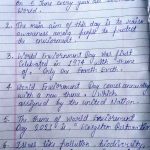 on 5 June every year all over
world.
2. The main aim of this day is to
awareness among people to protect
environment.
3. World Environment Day was first
celebrated in 1974 with theme
of, Only one Earth.
4. World Environment Day comes
with a new theme, which
assigned by the United Nation.
5. The theme of World Environment
Day 2021 is, Ecosystem Restoration
6. Issues like pollution, biodiversity